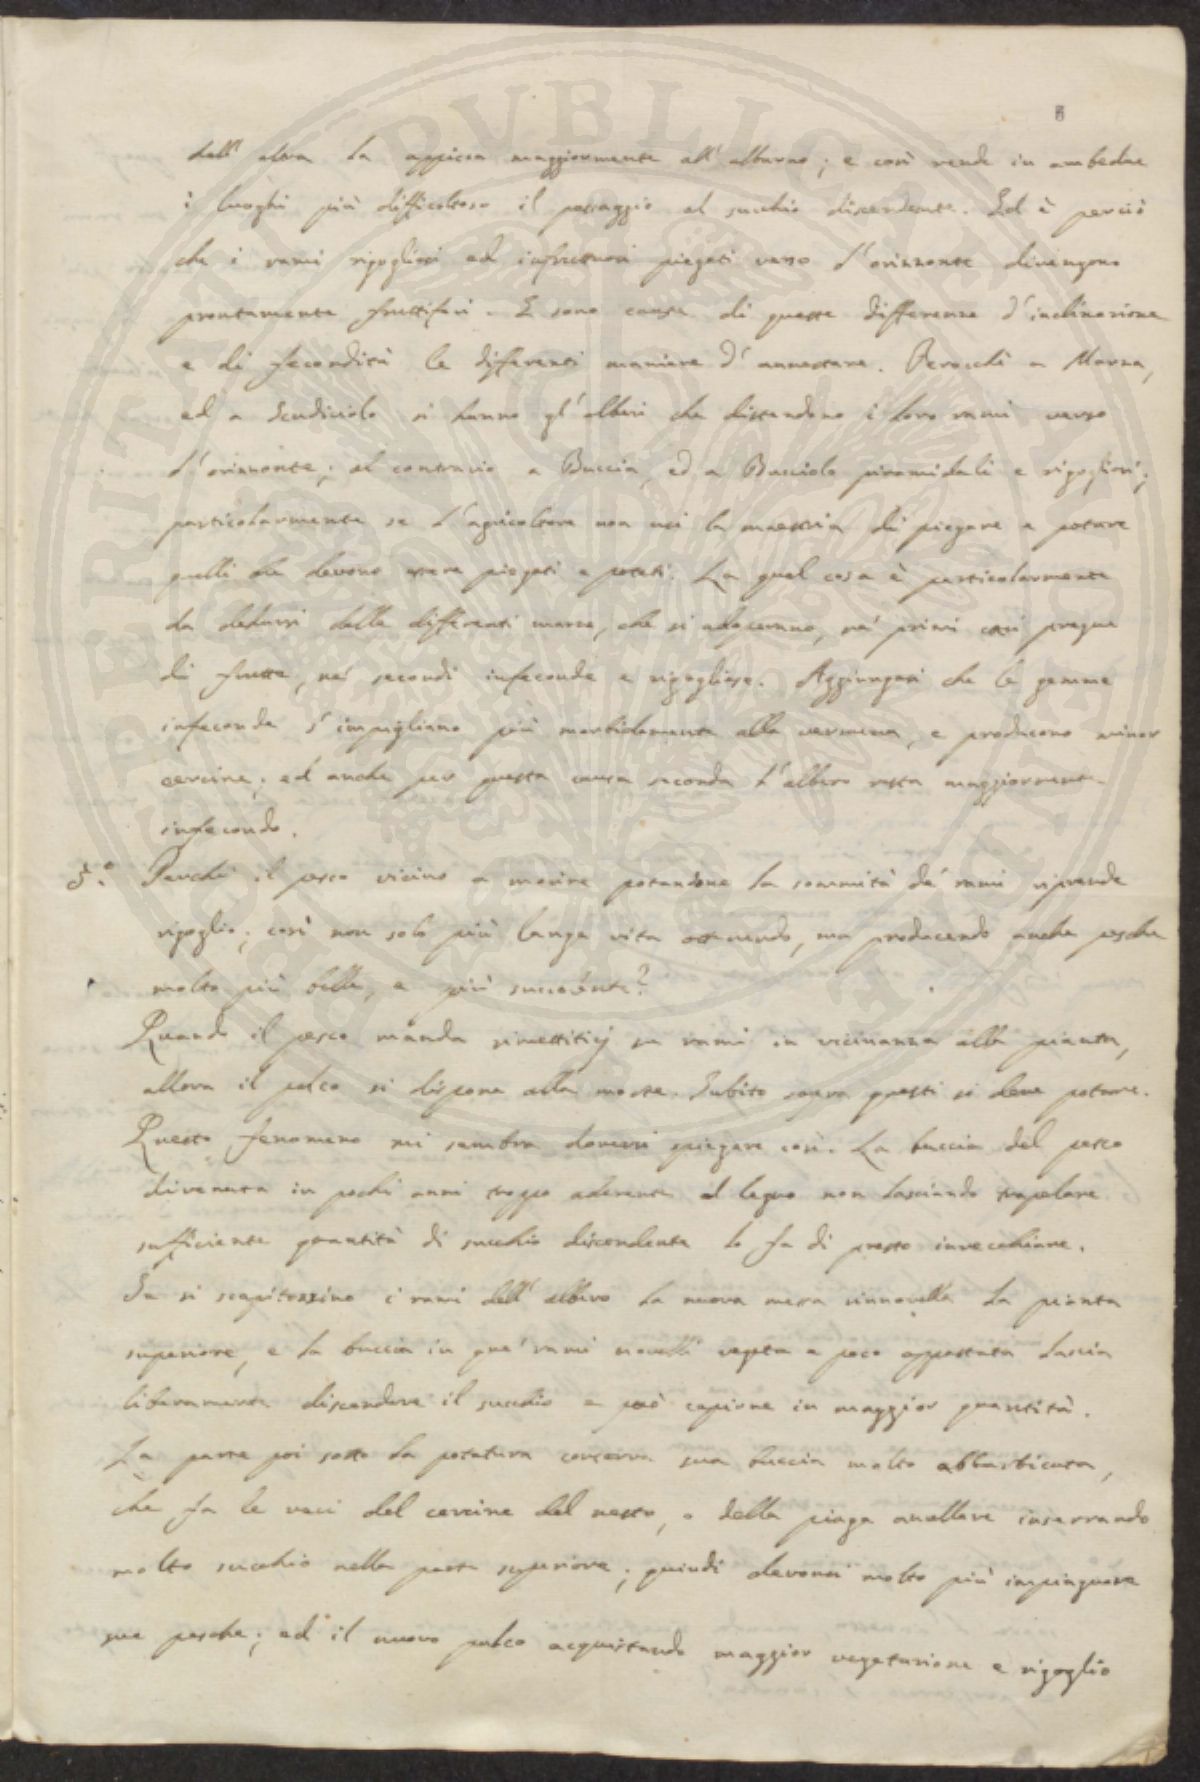 8
dall' altra la appicca maggiormente all' alburno; e così rende in ambedue
i luoghi più difficoltoso il passaggio al succhio discendente. Ed è perciò
che i rami rigogliosi ed infruttuosi piegati verso l'orizzonte divengono
prontamente fruttiferi. E sono causa di queste differenze d'inclinazione
e di fecondità le differenti maniere d'annestare. Perocchè a Marza,
ed a Scudiciolo si hanno gl'alberi che distendono i loro rami verso
l'orizzonte; al contrario a Buccia, ed a Bucciolo piramidali e rigogliosi;
particolarmente se l'agricoltore non usi la maestria di piegare e potare
quelli che devono essere piegati e potati. La qual cosa è particolarmente
da dedursi dalle differenti marze, che si adoperano, ne' primi casi pregne
di frutte, ne' secondi infeconde e rigogliose. Aggiungasi che le gemme
infeconde s'impigliano più morbidamente alla vermena, e producono minor
cercine; ed anche per questa causa seconda l'albero resta maggiormente
infecondo.
5.° Perchè il pesco vicino a morire potandone la sommità de' rami riprende
rigoglio; così non solo più lunga vita ottenendo, ma producendo anche pesche
molto più belle, e più succolente?
Quando il pesco manda rimettiticj su rami in vicinanza alla pianta,
allora il palco si dispone alla morte. Subito sopra questi si deve potare.
Questo fenomeno mi sembra doversi spiegare così. La buccia del pesco
divenuta in pochi anni troppo aderente al legno non lasciando trapelare
sufficiente quantità di succhio discendente lo fa di presto invecchiare.
Se si scapitozzino i rami dell' albero la nuova messa rinnovella la pianta
superiore, e la buccia in que' rami novelli vegeta e poco appostata lascia
liberamente discendere il succhio e può capirne in maggior quantità.
La parte poi sotto la potatura conserva sua buccia molto abbarbicata,
che fa le veci del cercine del nesto, o della piaga anellare inserrando
molto succhio nella parte superiore; quindi devonsi molto più impinguare
sue pesche; ed il nuovo palco acquistando maggior vegetazione e rigoglio